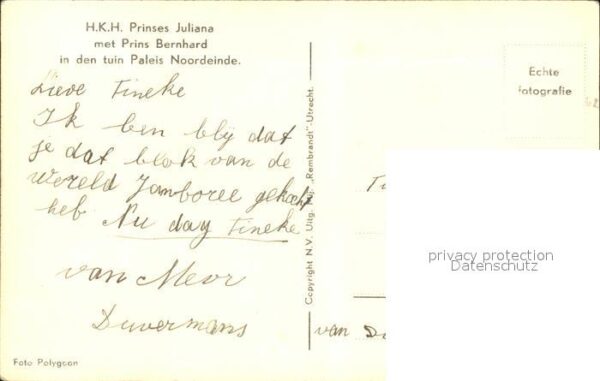 H.K.H. Prinses Juliana
met Prins Bernhard
in den tuin Paleis Noordeinde.
Lieve Tineke
Ik ben bly dat
je dat blok van de
wereld Jamboree gekocht
heb Nu day Tineke
van Mevr
Duvermans
Foto Polygoon
Copyright N.V. Uitg. Mij. „Rembrandt"-Utrecht.
Echte
fotografie
van
privacy protection
Datenschutz